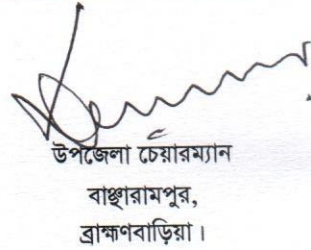 উপজেলা চেয়ারম্যান
বাঞ্ছারামপুর,
ব্রাহ্মণবাড়িয়া।